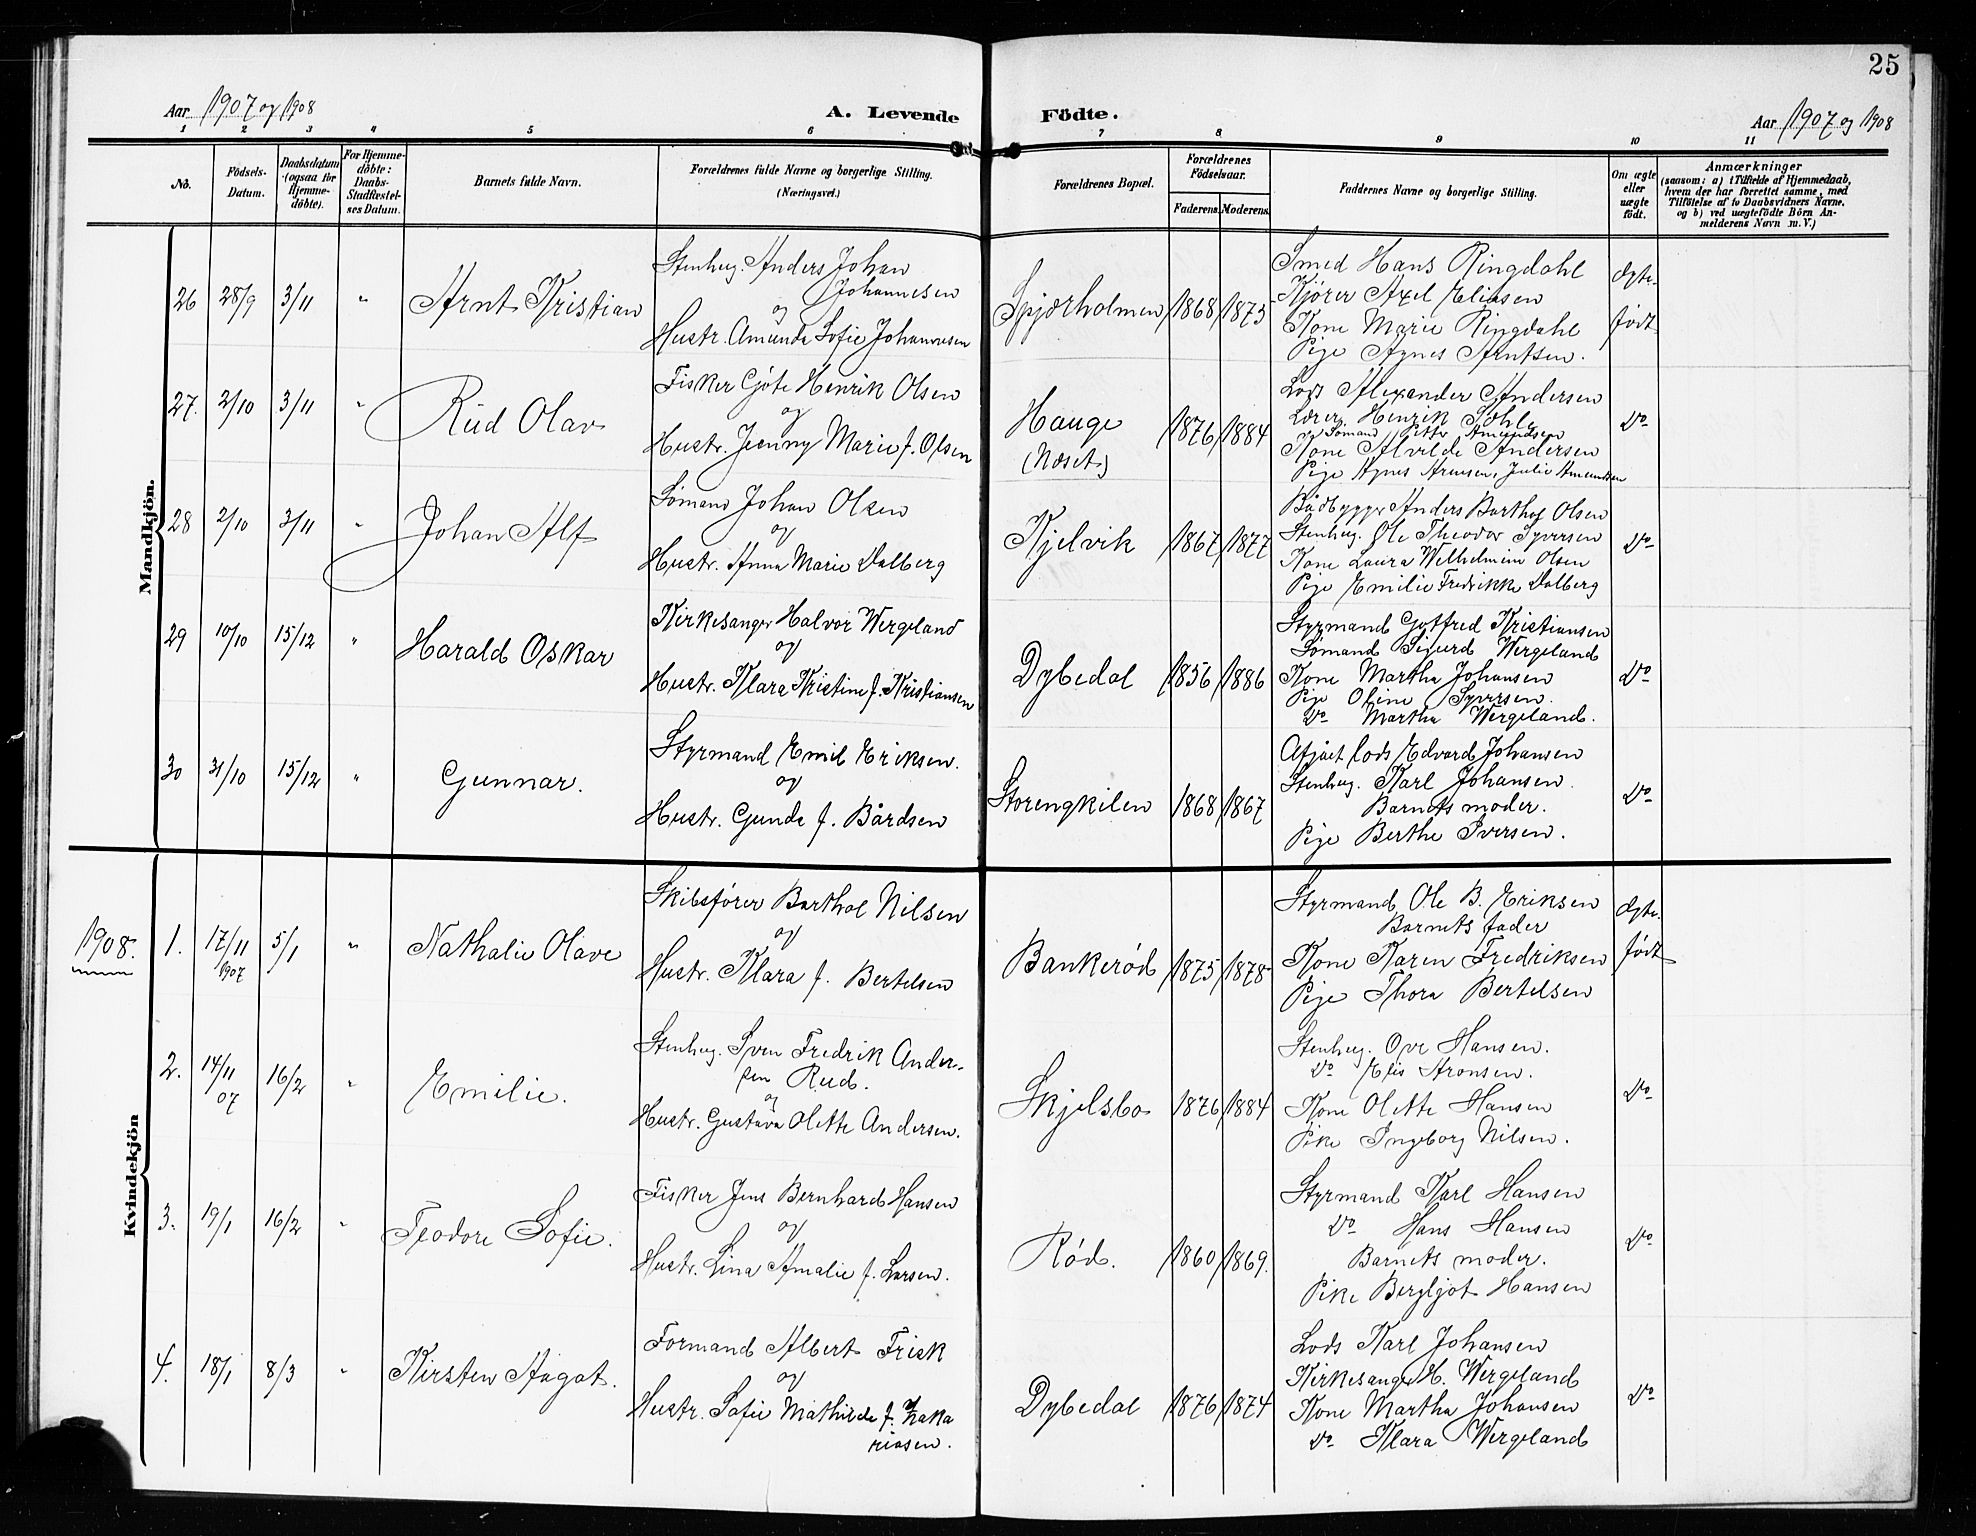 25
Aar 1907 og 1908
A. Levende
Födte.
Aar 1907 og 1908
1 2 3 4 5 6 7 8 9 10 11
No.
Födsels-
Datum.
Daabsdatum
(ogsaa for
Hjemme-
döbte).
For Hjemme-
döbte:
Daabs-
Stadfæstel-
ses Datum.
Barnets fulde Navn.
Forældrenes fulde Navne og borgerlige Stilling.
(Næringsvei.)
Forældrenes Bopæl.
Forældrenes
Födselsaar.
Faderens.
Moderens.
Faddernes Navne og borgerlige Stilling.
Om ægte
eller
uægte
födt.
Anmærkninger
(saasom: a) i Tilfælde af Hjemmedaab,
hvem der har forrettet samme, med
Tilföielse af to Daabsvidners Navne.
og b) ved uægtefödte Börn An-
melderens Navn m.V.)
Mandkjön.
26
28/9
3/11
"
Arnt Kristian
Stenhug. Anders Johan
Johannesen
og
Hustr. Amunda Sofie Johannesen
Spjærholmen
1868
1875
Smed Hans Ringdahl
Kjører Axel Eliasen
Kone Marie Ringdahl
Pige Agnes Arntsen.
Ægte-
født
27.
2/10
3/11
"
Rud Olav
Fisker Gjøte Henrik Olsen
og
Hustr. Jenny Marie f. Olsen
Hauge
(Næset)
1876
1884
Lods Alexander Andersen
Lærer Henrik Sæhle
Sømand Petter Amundsen
Kone Alvilde Andersen
Pige Agnes Arensen, Julie Amundsen
Do
28
2/10
3/11
"
Johan Alf
Sømand Johan Olsen
og
Hustr. Anna Marie Dalberg
Kjelvik
1867
1877
Bådbygger Anders Barthof Olsen
Stenhug. Ole Theodor Syversen
Kone Laura Wilhelmine Olsen
Pige Emilie Fredrikke Dalberg
Do
29
10/10
15/12
"
Harald Oskar
Kirkesanger Halvor Wergeland
og
Hustr. Klara Kristine f. Kristiansen
Dybedal
1856
1886
Styrmand Gotfred Kristiansen
Sømand Sigurd Wergeland
Kone Martha Johansen
Pige Oline Syversen.
Do Martha Wergeland.
Do
30
31/10
15/12
"
Gunnar.
Styrmand Emil Eriksen.
og
Hustr. Gunda f. Bårdsen
Storengkilen
1868
1867
Afgået lods Edvard Johansen
Stenhug. Karl Johansen.
Barnets moder.
Pige Berthe Iversen.
Do
1908.
Kvindekjön
1.
17/11
1907
5/1
"
Nathalie Olave
Skibsfører Barthol Nilsen
og
Hustr. Klara f. Bertelsen
Bankerød
1875
1878
Styrmand Ole B. Eriksen
Barnets fader
Kone Karen Fredriksen
Pige Thora Bertelsen
Ægte-
født
2.
14/11
07
16/2
"
Emilie.
Stenhug. Sven Fredrik Ander-
sen Rud.
og
Hustr. Gustava Olette Andersen.
Skjelsbo
1876
1884
Stenhug. Ove Hansen.
Do Elis Aronsen.
Kone Olette Hansen
Pike Ingeborg Nilsen.
Do
3.
19/1
16/2
"
Teodore Sofie.
Fisker Jens Bernhard Hansen
og
Hustr. Lina Amalie f. Larsen.
Rød.
1860
1869.
Styrmand Karl Hansen
Do Hans Hansen
Barnets moder.
Pike Bergljot Hansen
Do
4.
18/1
8/3
"
Kirsten Aagot.
Formand Albert Frisk
og
Hustr. Sofie Mathilde f. Zaka
riasen.
Dybedal
1876
1874
Lods Karl Johansen
Kirkesanger H. Wergeland
Kone Martha Johansen
Do Klara Wergeland
Do